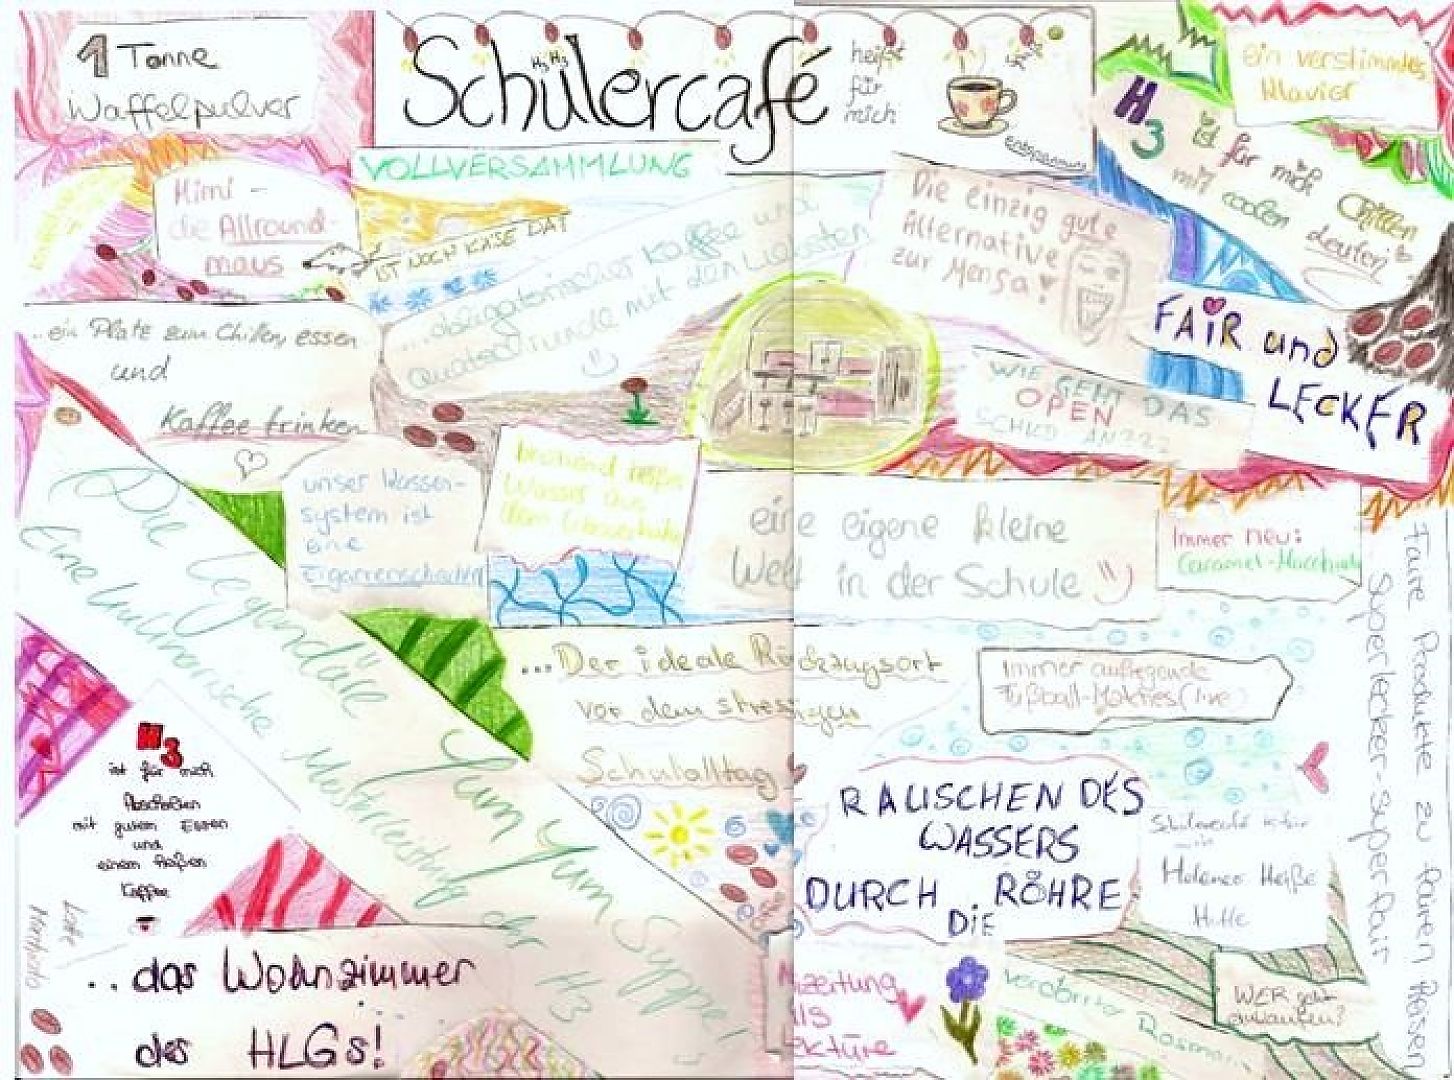 1 Tonne
Waffelpulver
Schülercafé
heißt
für
mich
Entspannung
ein verstimmtes
Klavier
H3 ist für mich Chillen
mit coolen Leuten!
VOLLVERSAMMLUNG
Mimi -
die Allround-
maus
IST NOCH KÄSE DA?
...obligatorischer Kaffee und
Quatschrunde mit den Liebsten
:)
Die einzig gute
Alternative
zur Mensa!
FAIR und
LECKER
...ein Platz zum Chillen, essen
und
Kaffee trinken
WIE GEHT DAS
OPEN
SCHILD AN???
unser Kassen-
system ist
eine
Zigarrenschachtel
brühend heißes
Wasser aus
dem
eine eigene kleine
Welt in der Schule :)
Immer neu:
Caramel-Macchiato
Die legendäre Yum Yum Suppe!
Eine kulinarische Meisterleistung der H3
...Der ideale Rückzugsort
vor dem stressigen
Schulalltag
Immer aufregende
Fußball-Matches (live)
Faire Produkte zu fairen Preisen
Superlecker-Superfair
H3
ist für mich
Abschalten
mit gutem Essen
und
einem heißen
Kaffee
RAUSCHEN DES
WASSERS
DURCH DIE RÖHRE
Schülercafé
Helenes Heiße
Hütte
Latte
Macchiato
...das Wohnzimmer
des HLGs!
WER geht
einkaufen?